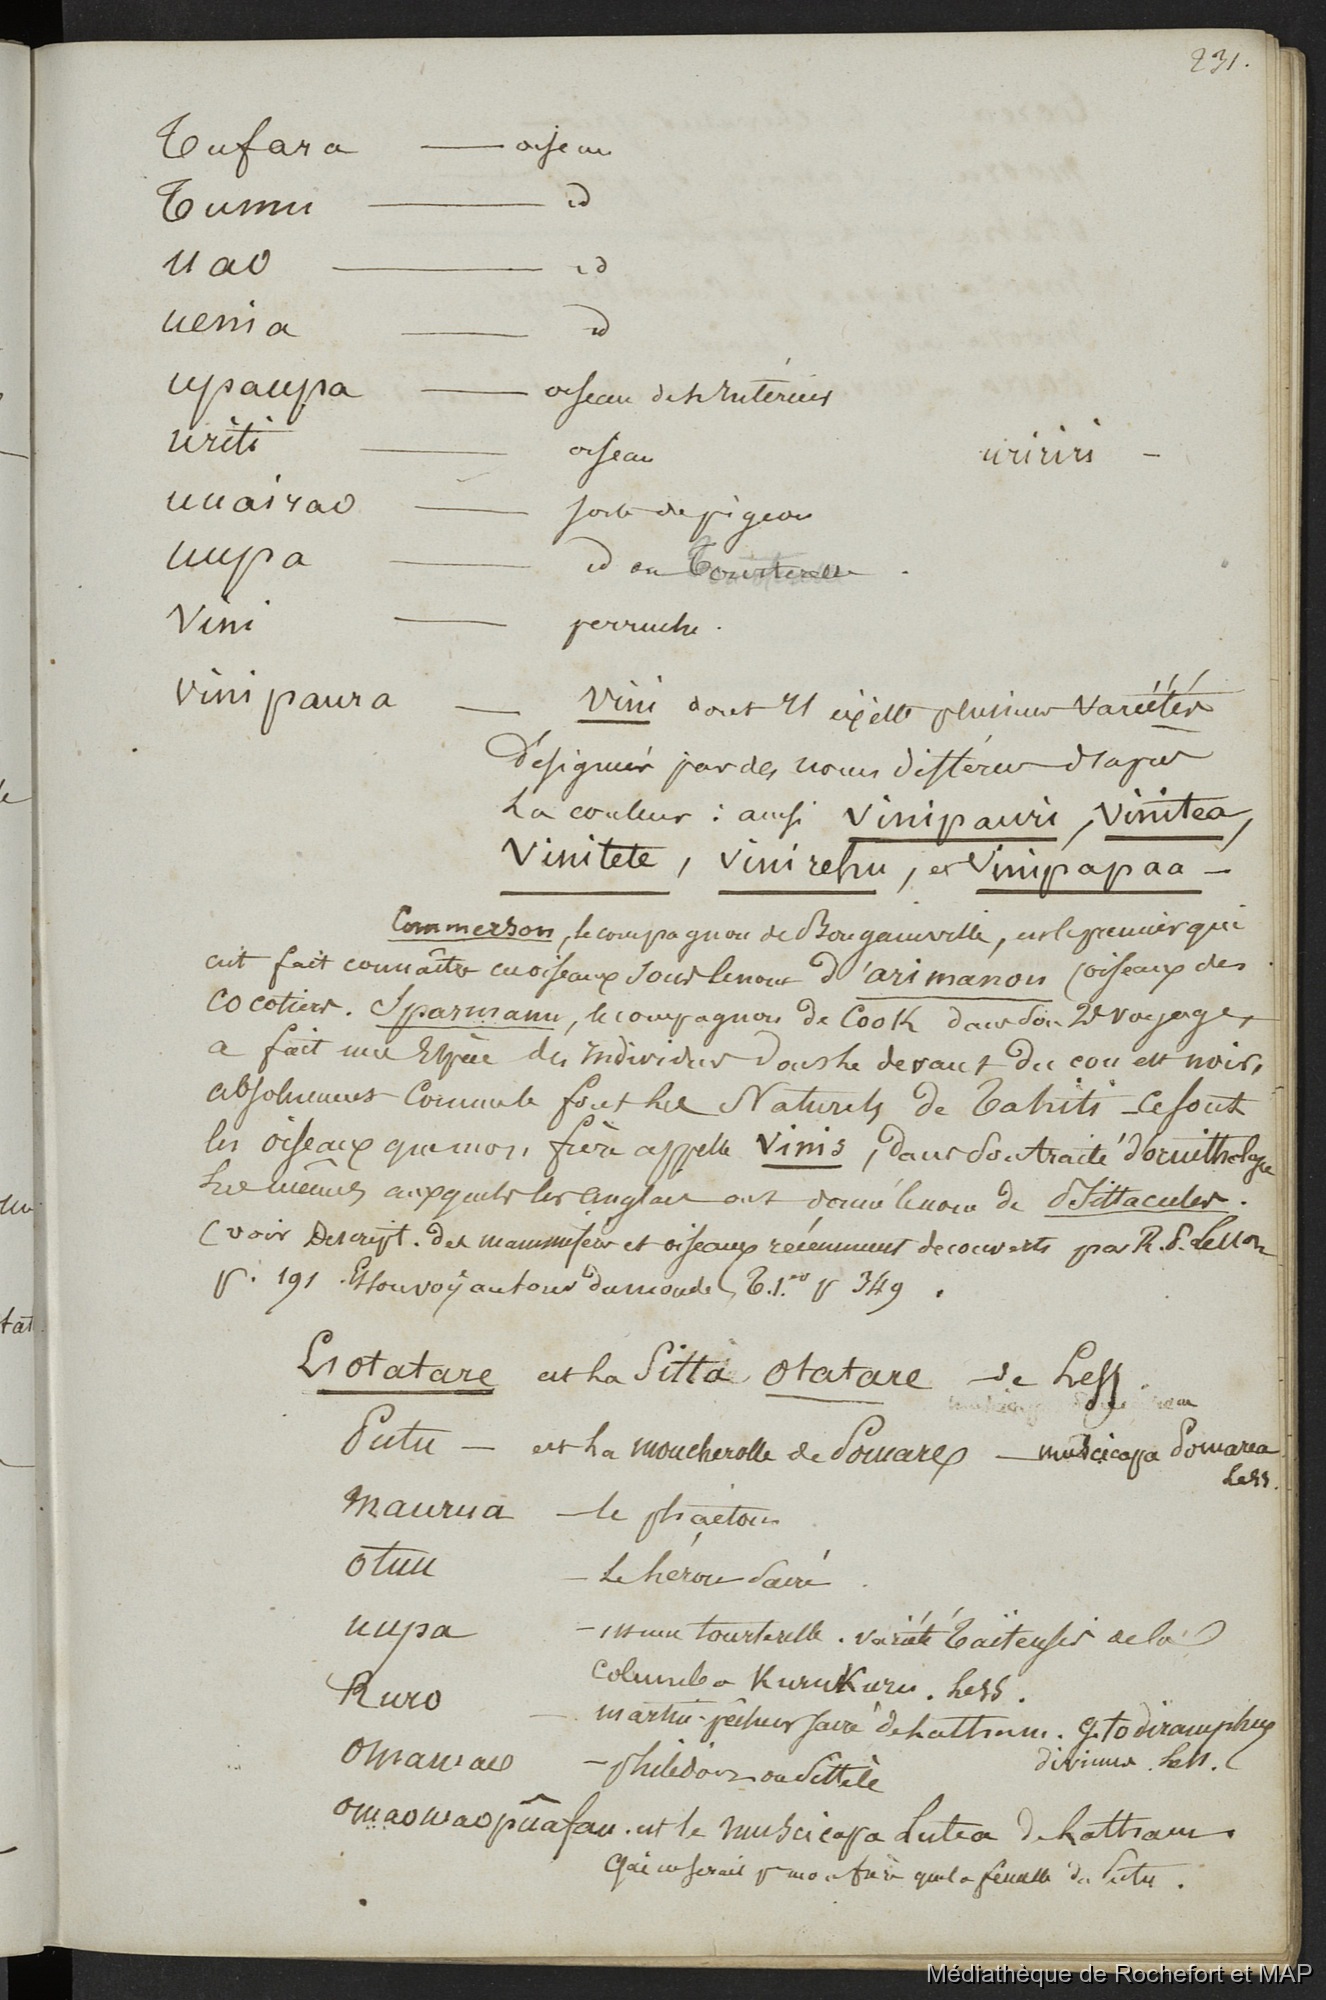 231.
Tufara — oiseau
Tumu — id
Uao — id
Uenia — id
Upaupa — oiseau de l'intérieur
Uriti — oiseau uririri –
Uuairao — sorte de pigeon
Uupa — id ou Tourterelle .
Vini — perruche .
Vinipaura — Vini dont il existe plusieurs variétés
Désignées par des noms différens d'après
la couleur : ainsi Vinipauri, Vinitea,
Vinitete, Vinirehu, et Vinipapaa –
Commerson, le compagnon de Bougainville, est le premier qui
ait fait connaître ces oiseaux sous le nom d'arimanon (oiseaux des
cocotiers. Sparmann, le compagnon de Cook dans son 2e voyage,
a fait une Espèce des individus dont le devant du cou est noir,
absolument comme le font les Naturels de Tahiti – ce sont
les oiseaux que mon frère appelle Vinis, dans son traité d'ornithologie
les mêmes auxquels les anglais ont donné le nom de Psittacules.
(voir Descript. des mammifères et oiseaux récemment découverts par R. P. Lesson
p. 191 . Et son voy autour du monde T. 1.er p 349 .
L'otatare est la Sitta otatare de Less.
Putu – est la moucherolle de Pomaré – muscicapa Pomarea
Less.
Maurua – le phaéton
Otuu – le héron sacré .
Uupa – est une tourterelle . variété Taïtensis de la
columba Kurukuru . Less .
Ruro – martin-pêcheur sacré de Latham . g. todiramphus
divinus . Less.
Omamao – philédon ou Sittèle
Omaomao pûafau . est le muscicapa Lutea de Latham .
qui ne serait p mon frère que la femelle du Putu .
Médiathèque de Rochefort et MAP